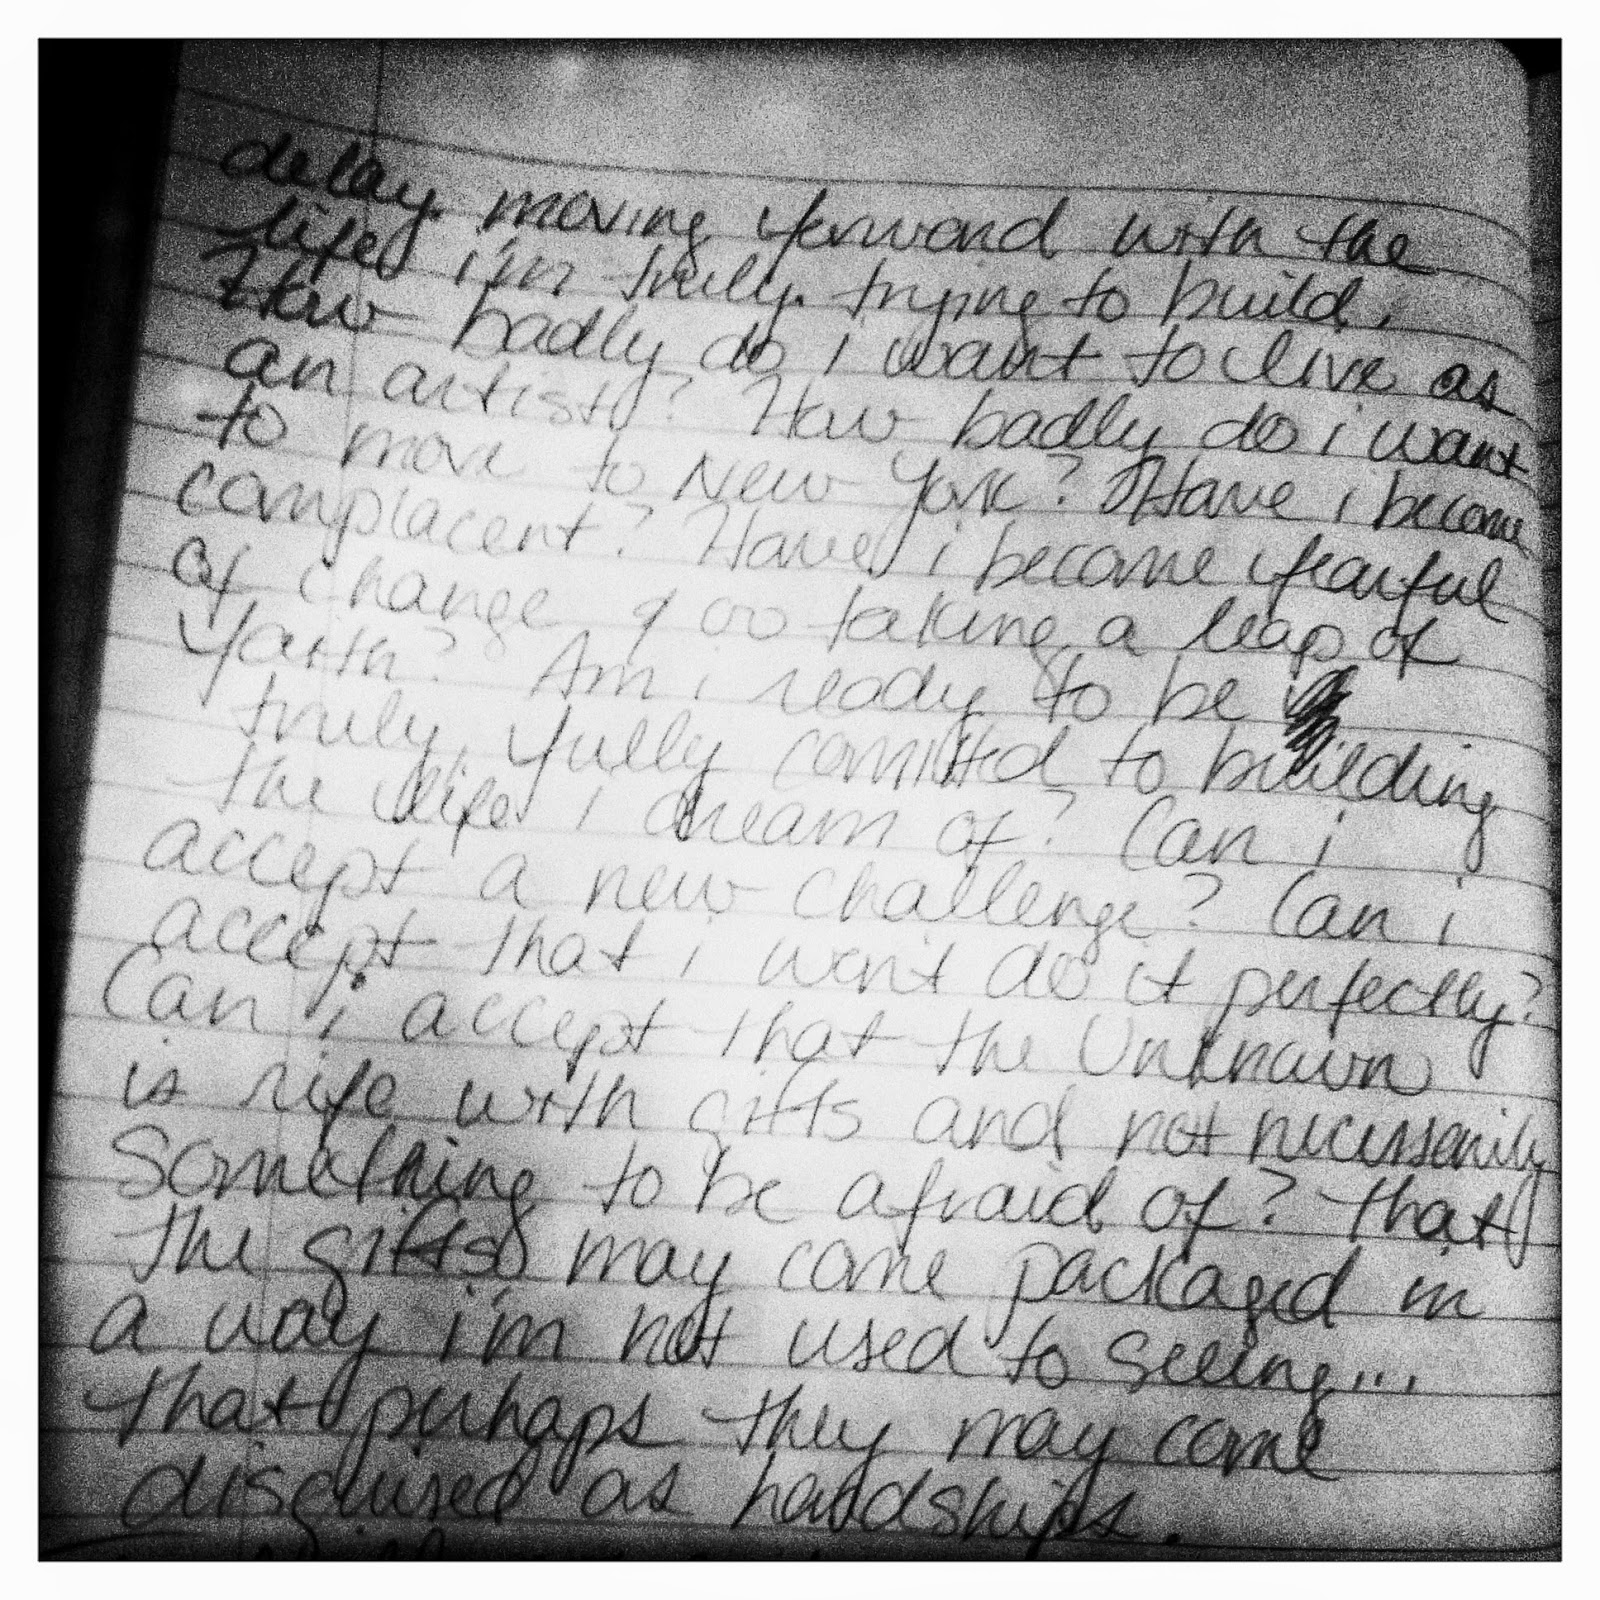 delay moving forward with the
life i'm truly trying to build.
How badly do i want to live as
an artist? How badly do i want
to move to New York? Have i become
complacent? Have i become fearful
of change & taking a leap of
faith? Am i ready to be
truly, fully comitted to building
the life i dream of? Can i
accept a new challenge? Can i
accept that i won't do it perfectly?
Can i accept that the Unknown
is rife with gifts and not necessarily
something to be afraid of? That
the gifts may come packaged in
a way i'm not used to seeing...
that perhaps they may come
disguised as hardships.